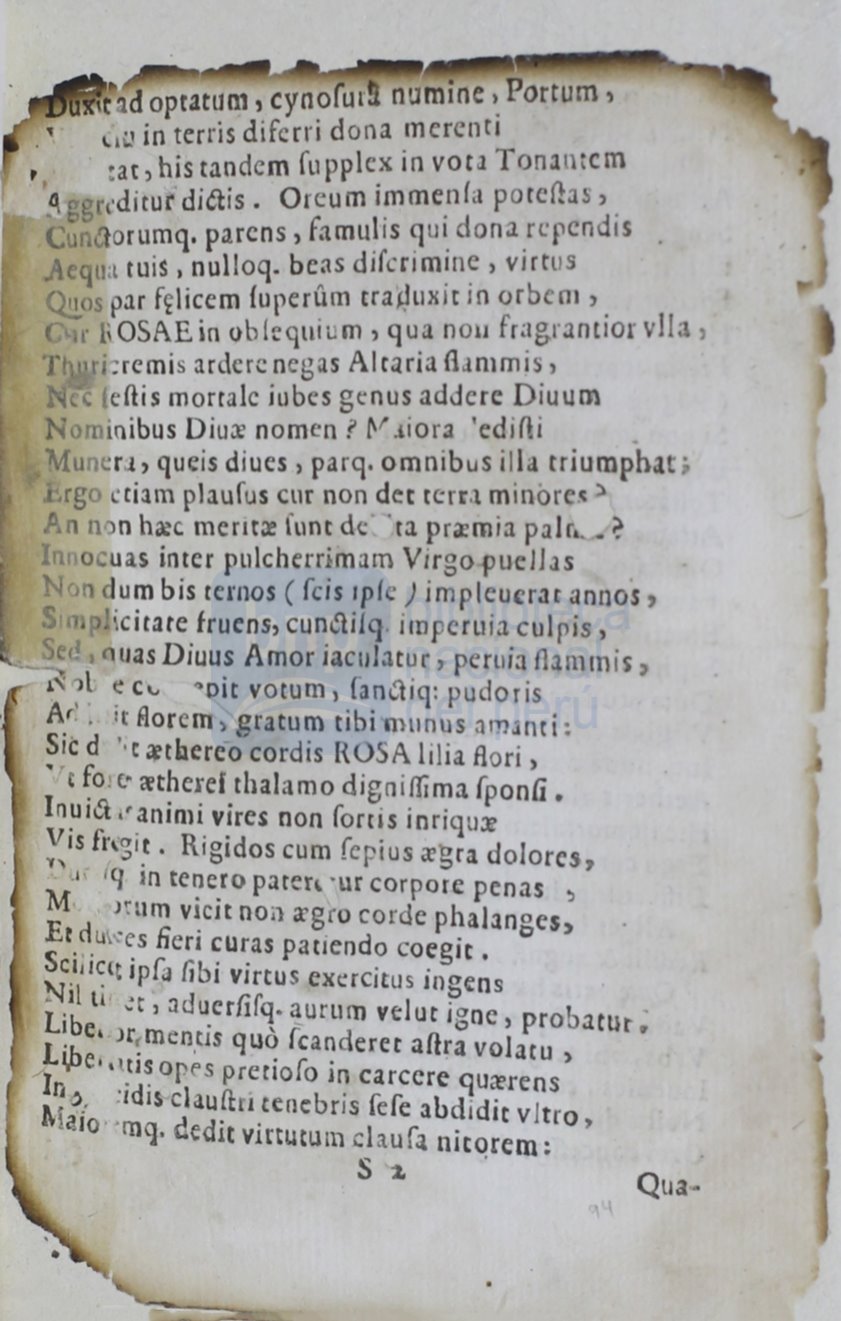 Duxit ad optatum, cynoſurâ numine, Portum,
in terris diferri dona merenti
his tandem ſupplex in vota Tonantem
Aggreditur dictis. Oreum immenſa poteſtas,
Cunctorumq. parens, famulis qui dona rependis
Aequa tuis, nulloq. beas diſcrimine, virtus
Quos par fęlicem ſuperûm traduxit in orbem,
Cur ROSAE in obſequium, qua non fragrantior vlla,
Thuricremis ardere negas Altaria flammis,
Nec feſtis mortale iubes genus addere Diuum
Nominibus Diuæ nomen? Maiora dediſti
Munera, queis diues, parq. omnibus illa triumphat;
Ergo etiam plauſus cur non det terra minores?
An non hæc meritæ ſunt præmia
Innocuas inter pulcherrimam Virgo puellas
Non dum bis ternos (ſcis ipſe) impleuerat annos,
Simplicitate fruens, cunctiſq. imperuia culpis,
Sed, quas Diuus Amor iaculatur, peruia flammis,
votum, ſanctiq: pudoris
florem, gratum tibi munus amanti:
Sic æthereo cordis ROSA lilia flori,
ætherei thalamo digniſſima ſponſi.
animi vires non ſortis inriquæ
Vis fregit. Rigidos cum ſepius ægra dolores,
in tenero pateretur corpore penas,
vicit non ægro corde phalanges,
Et dulces fieri curas patiendo coegit.
Scilicet ipſa ſibi virtus exercitus ingens
Nil timet, aduerſiſq. aurum velut igne, probatur.
mentis quò ſcanderet aſtra volatu,
opes pretioſo in carcere quærens
clauſtri tenebris ſeſe abdidit vltro,
Maioremq. dedit virtutum clauſa nitorem:
S 2
Qua-
94